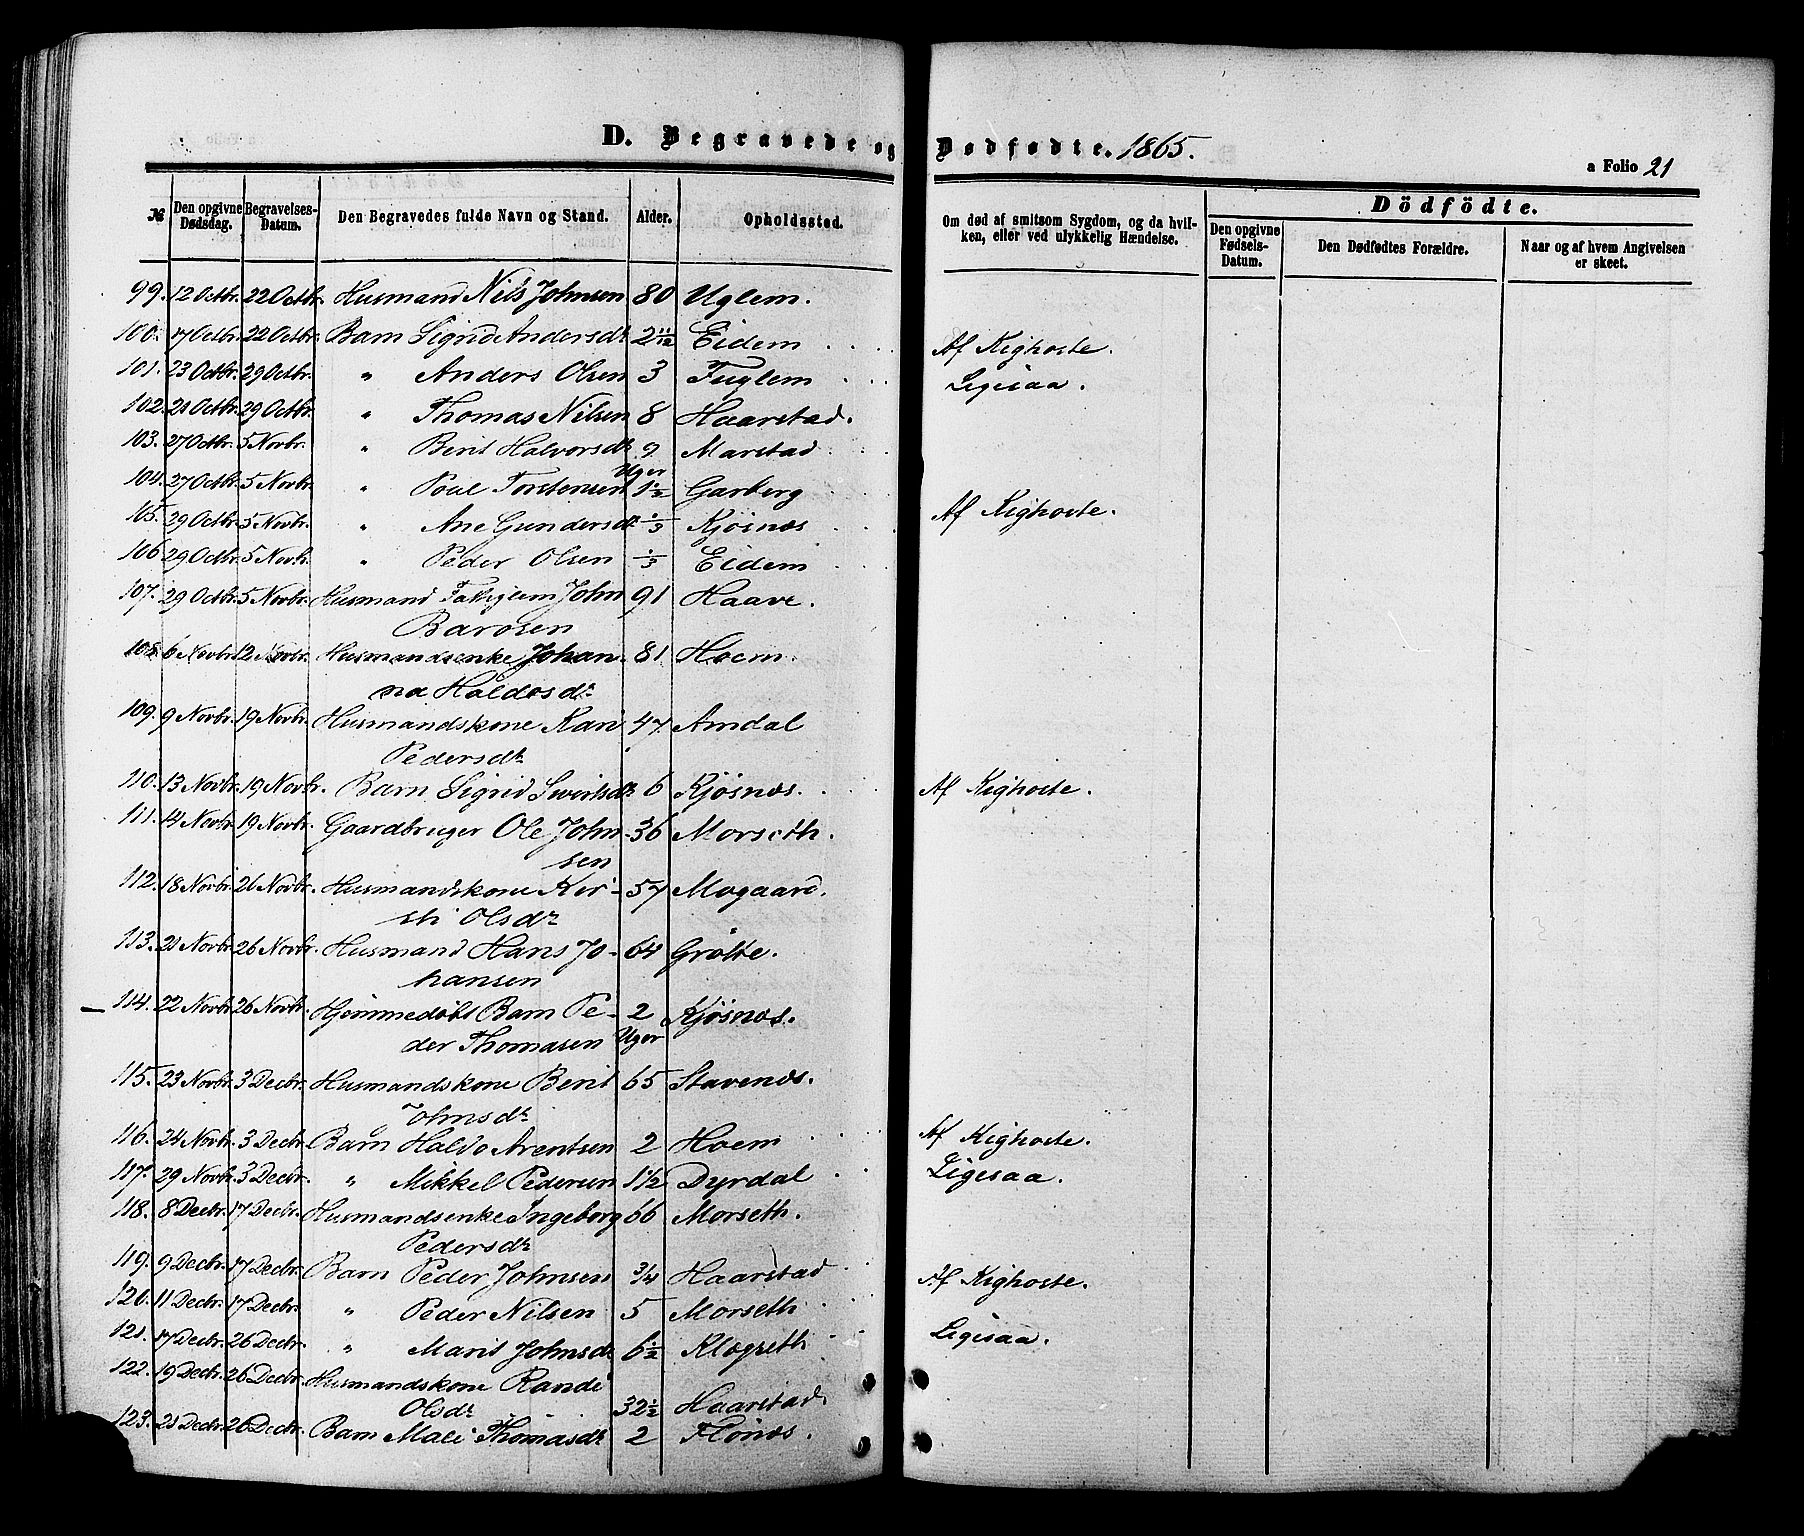 D. Begravede og Dödfödte. 1865.
a Folio 21
№ Den opgivne Dødsdag. Begravelses-Datum. Den Begravedes fulde Navn og Stand. Alder. Opholdssted. Om død af smitsom Sygdom, og da hvilken, eller ved ulykkelig Hændelse. Dödfödte. Den opgivne Fødsels-Datum. Den Dødfødtes Forældre. Naar og af hvem Angivelsen er skeet.
99. 12 Octbr. 22 Octbr. Husmand Nils Johnsen 80 Uglem.
100. 17 Octbr. 22 Octbr. Barn Sigrid Andersdr 2 11/12 Eidem Af Kighoste.
101. 23 Octbr. 29 Octbr. " Anders Olsen 3 Fuglem Ligesaa.
102. 21 Octbr. 29 Octbr. " Thomas Nilsen 8 Haarstad.
103. 27 Octbr. 5 Novbr. " Berit Halvorsdr 9 Uger Marstad
104. 27 Octbr. 5 Novbr. " Poul Torstensen 1 1/2 Garberg
105. 29 Octbr. 5 Novbr. " Ane Gundersdr 1/3 Kjösnæs Af Kighoste.
106. 29 Octbr. 5 Novbr. " Peder Olsen 1/3 Eidem
107. 29 Octbr. 5 Novbr. Husmand John 91 Haave.
Barosen
108. 6 Novbr. 12 Novbr. Husmandsenke Johan- 81 Hoem.
na Haldosdr
109. 9 Novbr. 19 Novbr. Husmandskone Kari 47 Amdal
Pedersdr
110. 13 Novbr. 19 Novbr. Barn Sigrid Sivertsdr 6 Kjösnæs. Af Kighoste.
111. 14 Novbr. 19 Novbr. Gaardbruger Ole John- 36 Morseth.
sen
112. 18 Novbr. 26 Novbr. Husmandskone Kir- 57 Mogaard.
sti Olsdr
113. 21 Novbr. 26 Novbr. Husmand Hans Jo- 64 Grötte.
hansen
114. 22 Novbr. 26 Novbr. Hjemmedöbt Barn Pe- 2 Kjösnæs.
der Thomasen Uger
115. 23 Novbr. 3 Decbr. Husmandskone Berit 65 Stavenæs.
Johnsdr
116. 24 Novbr. 3 Decbr. Barn Haldo Arentsen 2 Hoem Af Kighoste.
117. 29 Novbr. 3 Decbr. " Mikkel Pedersen 1 1/2 Dyrdal Ligesaa.
118. 8 Decbr. 17 Decbr. Husmandsenke Ingeborg 66 Morseth.
Pedersdr
119. 9 Decbr. 17 Decbr. Barn Peder Johnsen 3/4 Haarstad Af Kighoste.
120. 11 Decbr. 17 Decbr. " Peder Nilsen 5 Morseth
121. 17 Decbr. 26 Decbr. " Marit Johnsdr 6 1/2 Klegseth Ligesaa.
122. 19 Decbr. 26 Decbr. Husmandskone Randi
Olsdr 32 1/2 Haarstad.
123. 21 Decbr. 26 Decbr. Barn Mali Thomasdr 2 Flönæs.